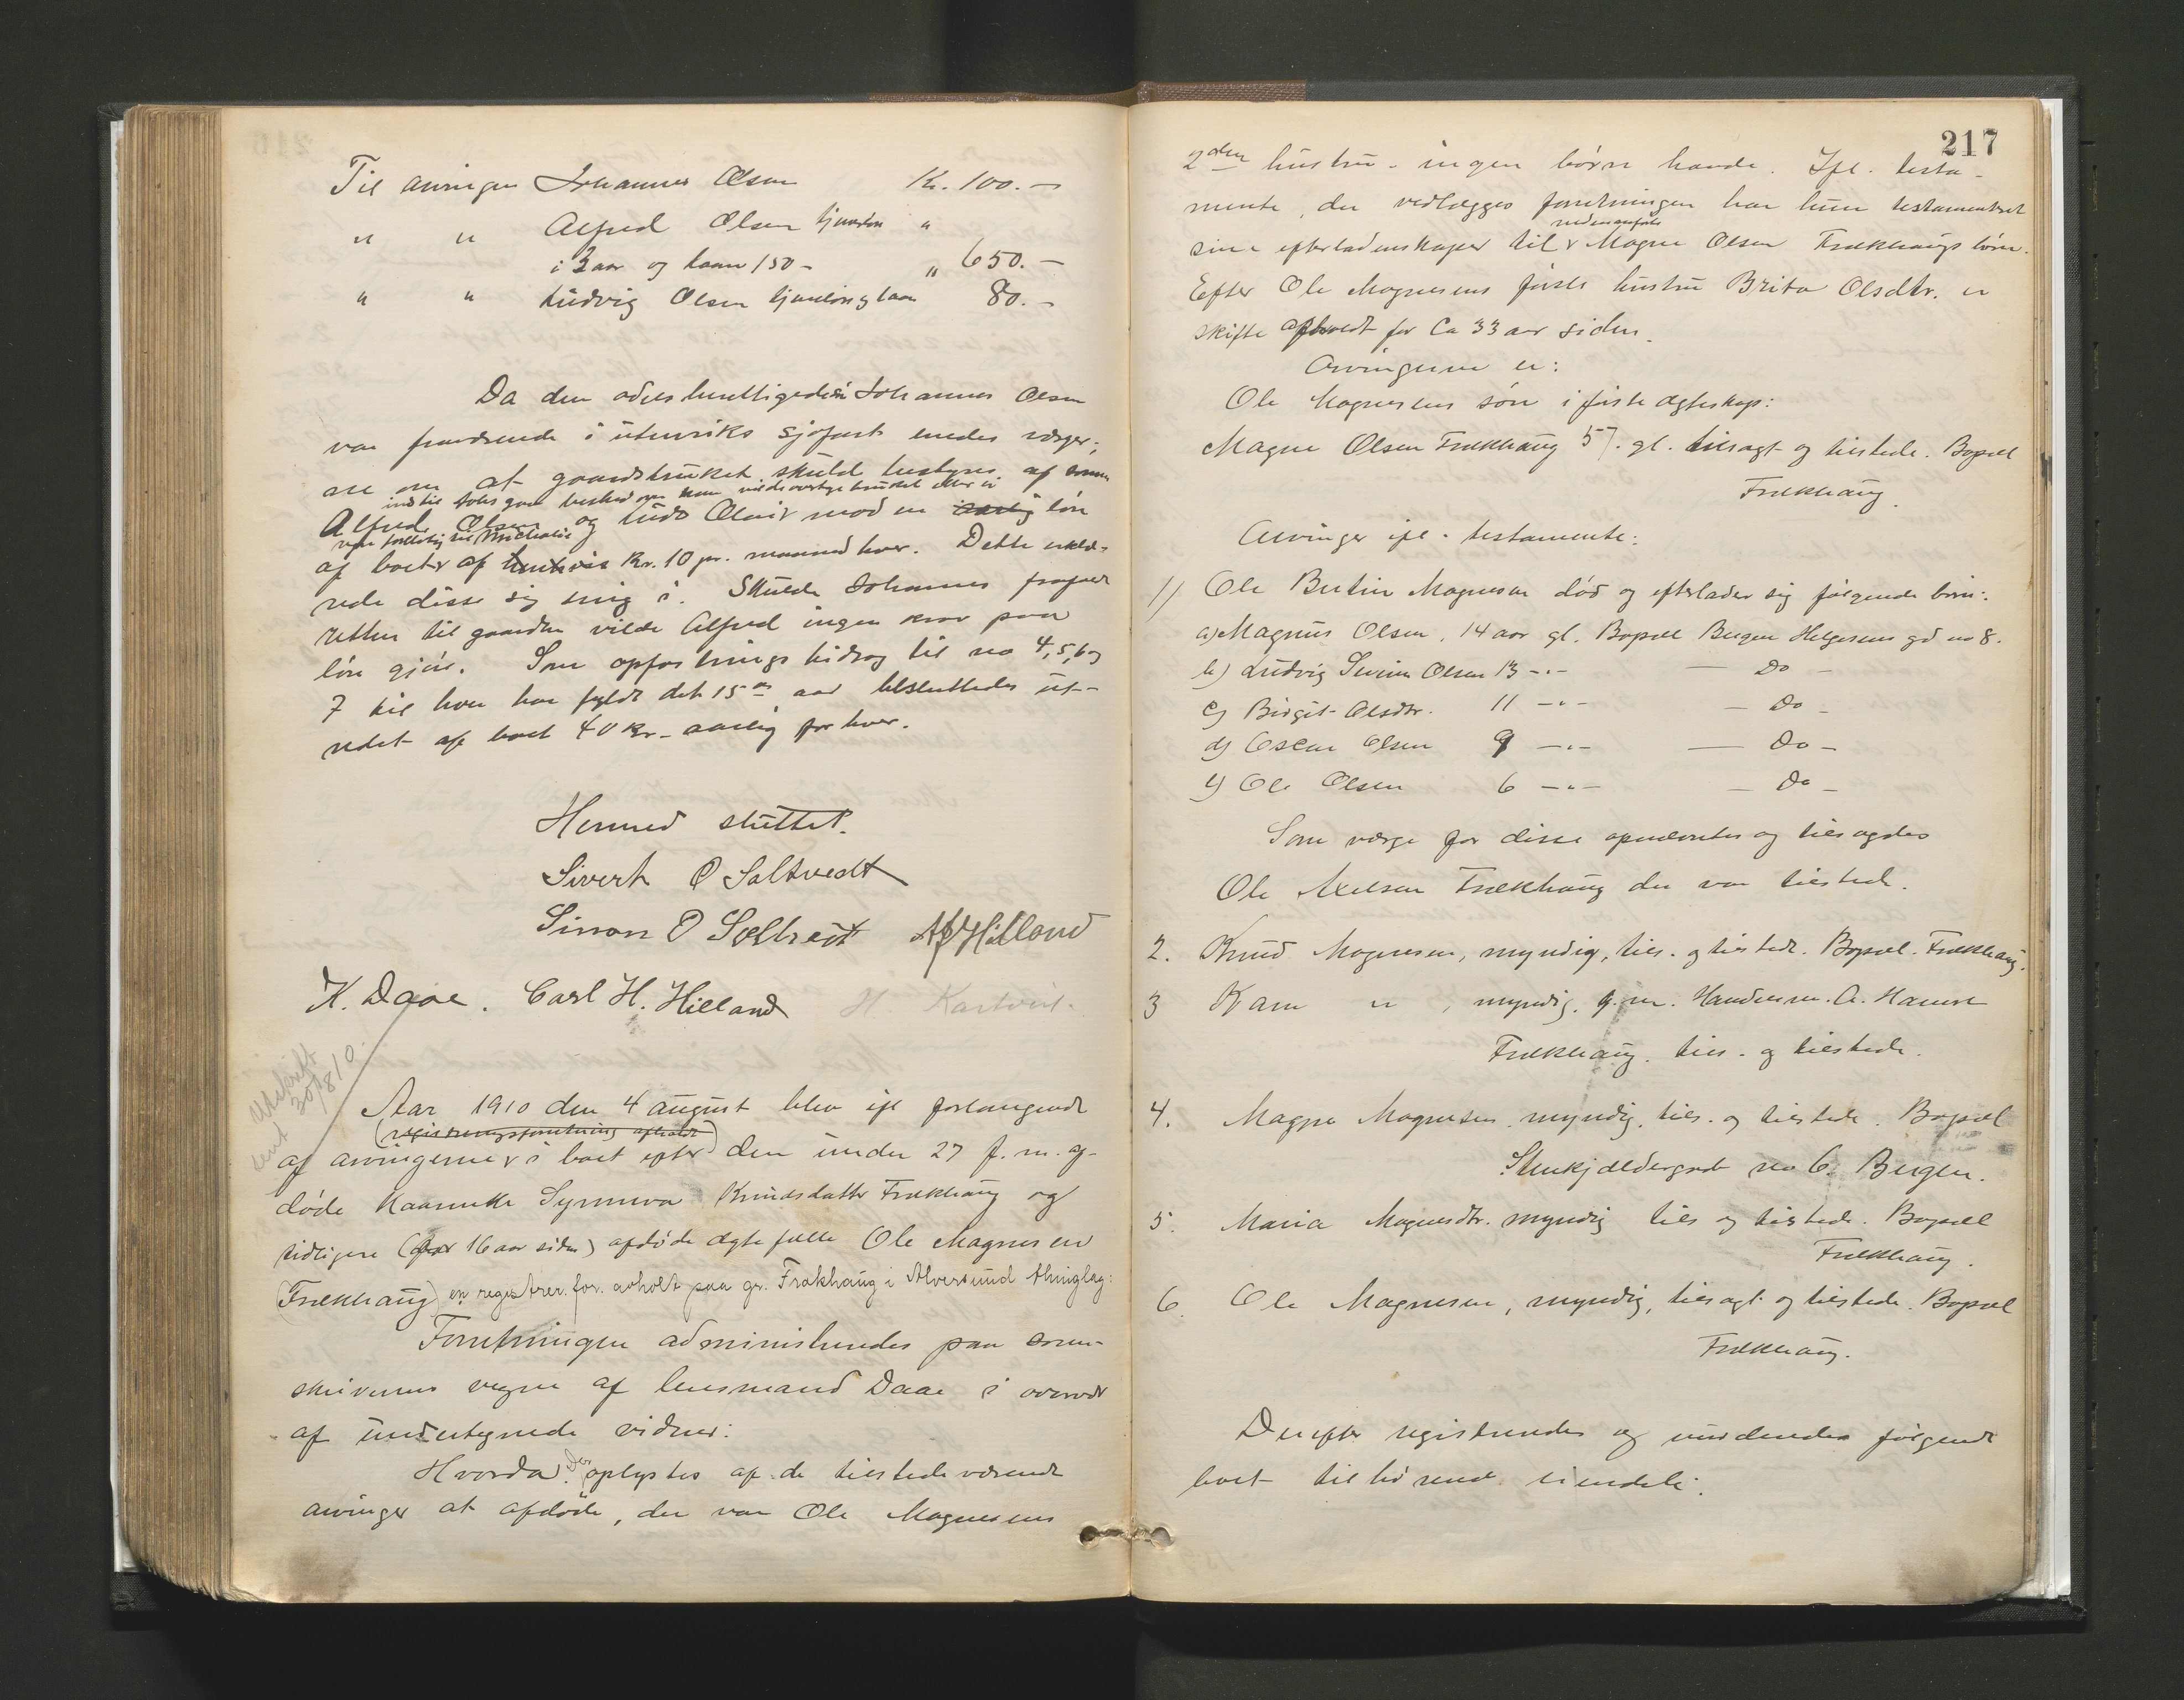 Til arvingen Johannes Olsen Kr. 100.-
" " Alfred Olsen tjenerløn "
i 2 aar og laan 150 - " 650.-
" " Ludvig Olsen tjenerløn og laan 80.-
Da den odelsberettigede Johannes Olsen
var fraværende i utenriks sjøfart enedes
om at gaardsbruket skulde bestyres af
indtil Johs gav besked om han vilde overtage bruket eller ei
Alfred Olsen og mod en aarlig løn
af boet af Kr. 10 pr. maaned hver. Dette erklæ-
rede disse sig enig i. Skulde Johannes frafalde
retten til gaarden vilde Alfred ingen krav paa
løn gjøre. Som opfostringsbidrag til no 4, 5, 6 og
7 til hver har fyldt det 15de aar besluttedes ut-
redet af boet 40 Kr. aarlig for hver.
Hermed sluttet.
Sivert O Saltvedt
Simon O Sæltvedt Hilland
K. Daae. Carl H. Hilland H. Kartveit.
Utskrift
30/8/10.
Aar 1910 den 4 august blev ifl forlangende
(registreringsforretning afholdt)
af arvingerne i boet efter den under 27 f. m. af-
døde kaarenke Synneva Knudsdatter Frækhaug og
tidligere (for 16 aar siden) afdøde ægtefælle Ole Magnesen
(Frækhaug) en registrer. for. avholt paa gr. Frækhaug i Alversund thinglag:
Forretningen administreredes paa soren-
skriverens vegne af lensmand Daae i overvær
af undertegnede vidner:
Hvorda: Der oplystes af de tilstedeværende
arvinger at afdøde, der var Ole Magnesens
217
2den hustru - ingen børn havde. Ifl. testa-
mente, der vedlægges forretningen har hun testamenteret
nedenanførte
sine efterladenskaper til Magne Olsen Frækhaugs børn.
Efter Ole Magnesens første hustru Brita Olsdtr. er
skifte afholdt for Ca 33 aar siden.
Arvingerne er:
Ole Magnesens søn i første ægteskap:
Magne Olsen Frækhaug 57. gl. tilsagt og tilstede. Bopæl
Frækhaug.
Arvinger ifl. testamente:
1) Ole Bertin Magnesen død og efterlader sig følgende børn:
a) Magnus Olsen, 14 aar gl. Bopæl Bergen Helgesens gd no 8.
b) Ludvig Severin Olsen 13 -"- — Do -
c) Birgit Olsdtr. 11 -"- — Do -
d) Oscar Olsen 9 -"- — Do -
e) Ole Olsen 6 -"- — Do -
Som værge for disse opnævntes og tilsagdes
Ole Axelsen Frækhaug der var tilstede.
2. Knud Magnesen, myndig, tils. og tilstede. Bopæl Frækhaug.
3 Kari " , myndig. g. m. Handelsm. A. Hamre
Frækhaug. tils. og tilstede.
4. Magne Magnesen, myndig, tils. og tilstede. Bopæl
Stenkjældergaten no 6. Bergen.
5. Maria Magnesdtr. myndig tils og tilstede. Bopæl
Frækhaug.
6. Ole Magnesen, myndig, tilsagt og tilstede. Bopæl
Frækhaug.
Derefter registreredes og vurderedes følgende
boet tilhørende eiendele: